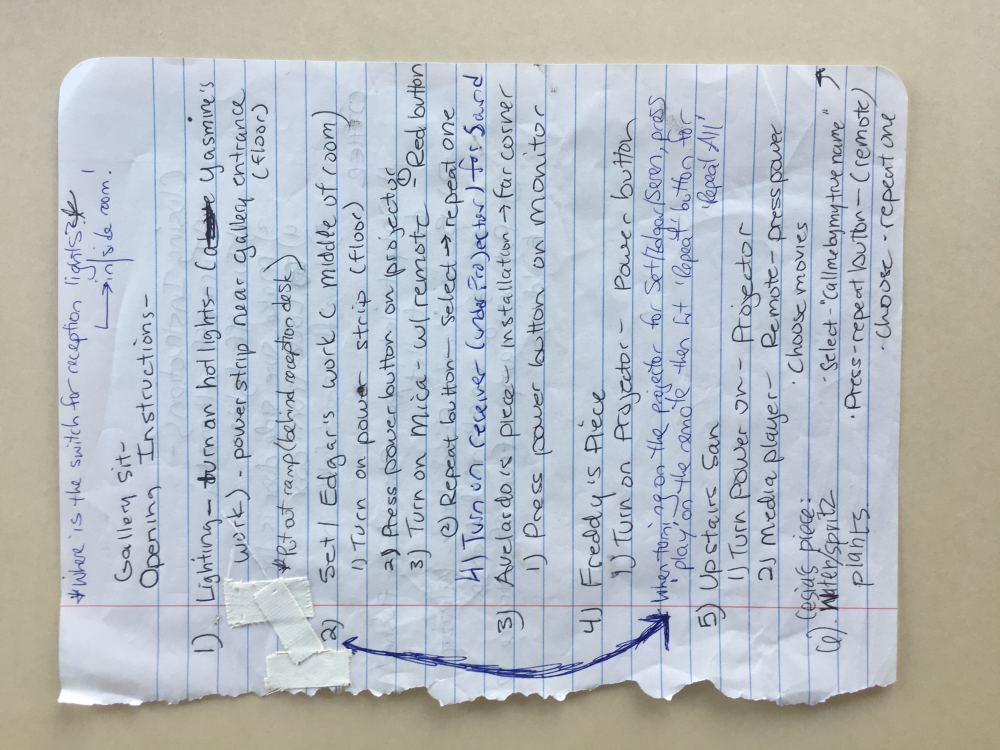 *Where is the switch for reception lights?*
↳ inside room!
Gallery Sit-
Opening Instructions-
1) Lighting - turn on hot lights - ( Yasmine's
work) - power strip near gallery entrance
(floor)
*Put at ramp (behind reception desk)
2) Set / Edgar's work ( middle of room)
1) Turn on power strip (floor)
2) Press power button on projector
3) Turn on Mica - w/ remote - ① Red button
② Repeat button - Select → repeat one
4) Turn on receiver (under projector) for Sound
3) Avelardo's piece - installation → far corner
1) Press power button on monitor
4) Freddy's Piece
1) Turn on Projector - Power button
*When turning on the projector for Set/Edgar/Seren, press
'play' on the remote then hit 'Repeat' button to
'Repeat All'
5) Upstairs San
1) Turn power on - Projector
2) Media player - Remote - press power
· Choose movies
· Select - "Call me by my true name"
· Press - repeat button - (remote)
· Choose - repeat one
piece:
Water/spritz
plants.